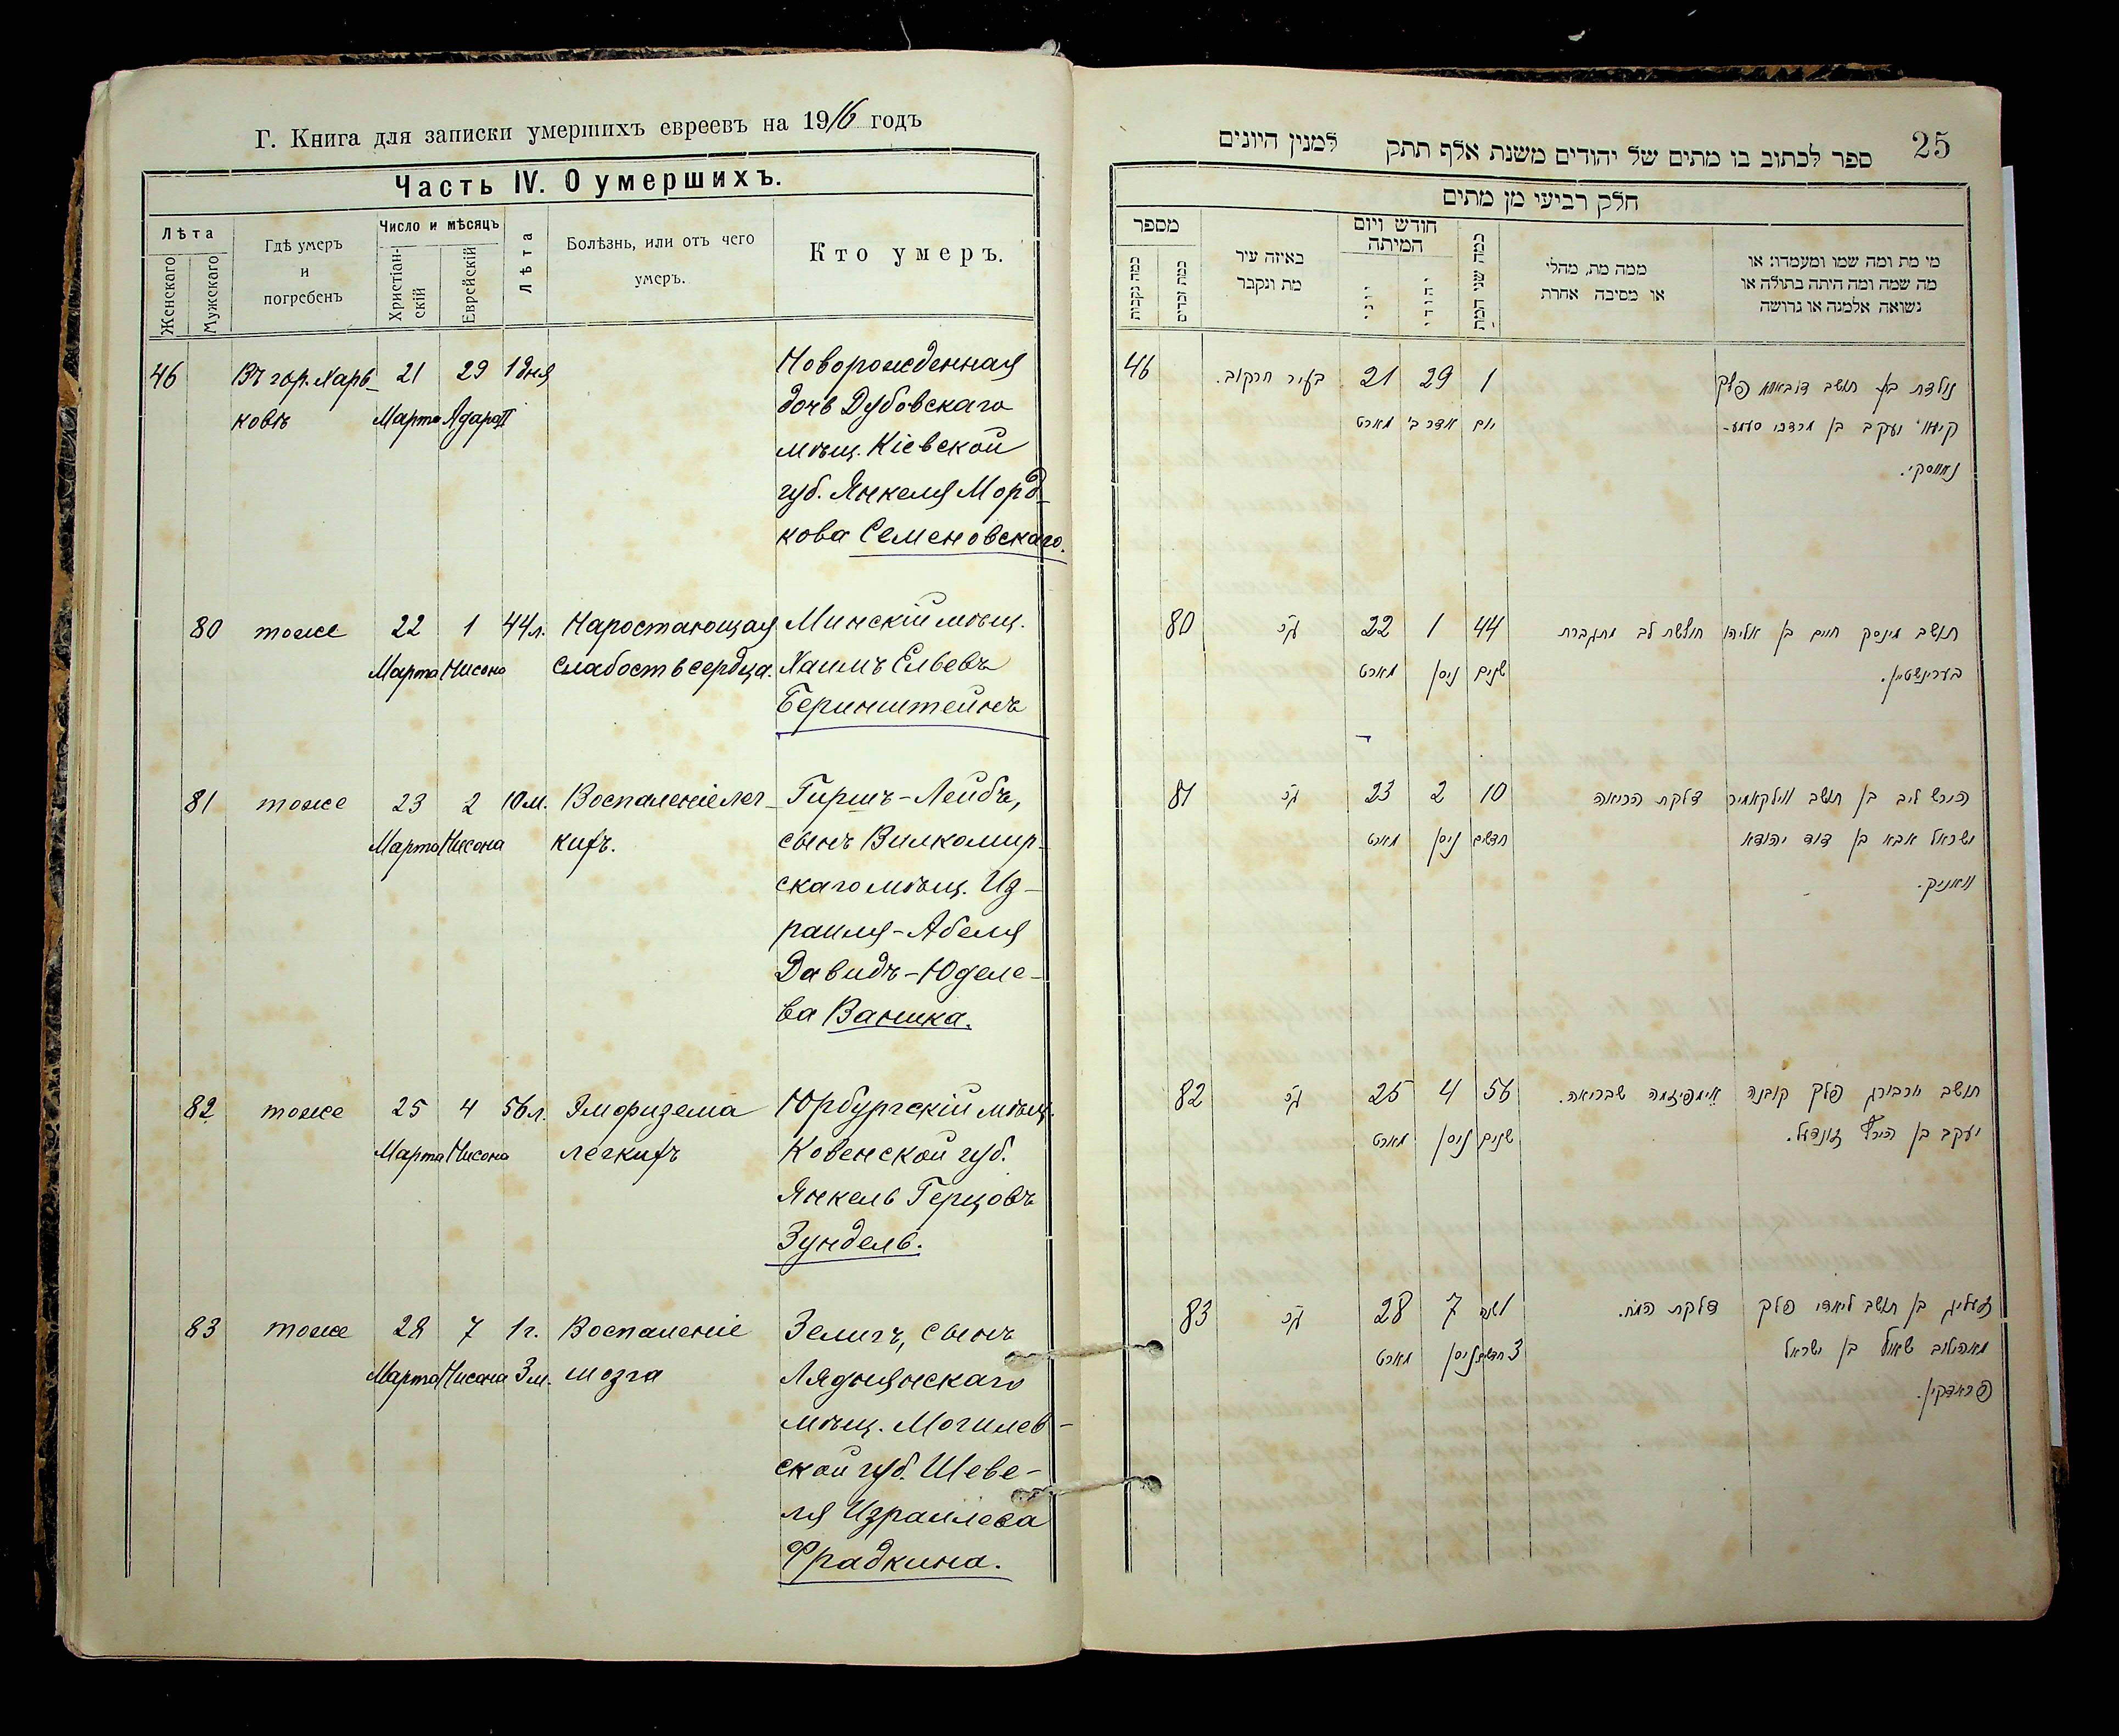 Г. Книга для записки умершихъ евреевъ на 1916 годъ
Часть IV. О умершихъ.
Лѣта
Женскаго
Мужескаго
Гдѣ умеръ
и
погребенъ
Число и мѣсяцъ
Христіан-
скій
Еврейскій
Лѣта
Болѣзнь, или отъ чего
умеръ.
Кто умеръ.
46 Въ гор. Харь- 21 29 1 дня Новорожденная
ковѣ Марта Адара II дочь Дубовскаго
мѣщ. Кіевской
губ. Янкеля Морд-
кова Семеновскаго.
80 тоже 22 1 44 л. Наростающая Минскій мѣщ.
Марта Нисона слабость сердца. Хаимъ Ельевъ
Беринштейнъ
81 тоже 23 2 10 м. Воспаленіе лег- Гиршъ-Лейбъ,
Марта Нисона кихъ. сынъ Вилкомир-
скаго мѣщ. Из-
раиля-Абеля
Давидъ-Юделе-
ва Ваника.
82 тоже 25 4 56 л. Эмфизема Юрбургскій мѣщ.
Марта Нисона легкихъ Ковенской губ.
Янкель Герцовъ
Зундель.
83 тоже 28 7 1 г. Воспаленіе Зелигъ, сынъ
Марта Нисона 3 м. мозга Ляднянскаго
мѣщ. Могилев-
ской губ. Шеве-
ля Израилева
Фрадкина.
25
ספר לכתוב בו מתים של יהודים משנת אלף תתק למנין היונים
חלק רביעי מן מתים
מספר
כמה נקבות
כמה זכרים
באיזה עיר
מת ונקבר
חודש ויום
המיתה
יוני
יהודי
כמה שני המת
ממה מת, מהלי
או מסיבה אחרת
מי מת ומה שמו ומעמדו: או
מה שמה ומה היתה בתולה או
נשואה אלמנה או גרושה
46 בעיר חרקוב. 21 29 1 נולדת בת תושב דובאווא פלך
מארט אדר ב' יום קיעוו יעקב בן מרדכי סעמע-
נאווסקי.
80 22 1 44 חולשת לב מתגברת תושב מינסק חיים בן אליהו
מארט ניסן שנים בערינשטיין.
81 23 2 10 דלקת הריאה הירש ליב בן תושב ווילקאמיר
מארט ניסן חדשים ישראל אבא בן דוד יהודא
וואניק.
82 25 4 56 אימפיזמה שבריאה. תושב יורבורג פלך קובנה
מארט ניסן שנים יעקב בן הירץ זונדעל.
83 28 7 1 שנה דלקת המח. זעליג בן תושב ליאדי פלך
מארט ניסן 3 חדשים מאהילוב שאול בן ישראל
פראדקין.